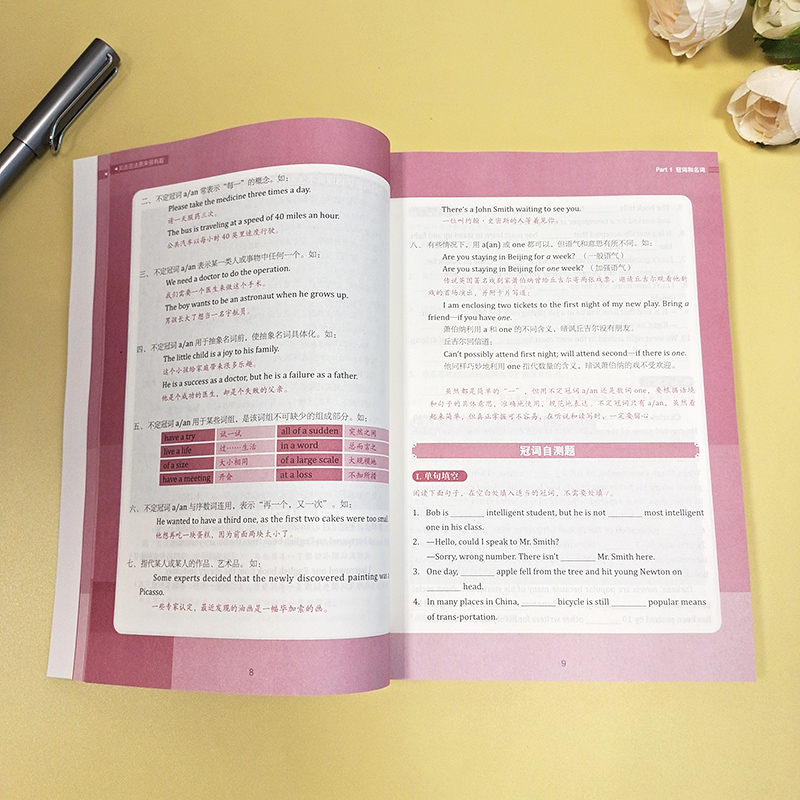 二、不定冠词 a/an 常表示“每一”的概念。如：
Please take the medicine three times a day.
请一天服药三次。
The bus is traveling at a speed of 40 miles an hour.
公共汽车以每小时 40 英里速度行驶。
三、不定冠词 a/an 表示某一类人或事物中任何一个。如：
We need a doctor to do the operation.
我们需要一个医生来做这个手术。
The boy wants to be an astronaut when he grows up.
男孩长大了想当一名宇航员。
四、不定冠词 a/an 用于抽象名词前，使抽象名词具体化。如：
The little child is a joy to his family.
这个小孩给家庭带来很多乐趣。
He is a success as a doctor, but he is a failure as a father.
他是个成功的医生，却是个失败的父亲。
五、不定冠词 a/an 用于某些词组，是该词组不可缺少的组成部分。如：
have a try 试一试 all of a sudden 突然之间
live a life 过……生活 in a word 总而言之
of a size 大小相同 of a large scale 大规模地
have a meeting 开会 at a loss 不知所措
六、不定冠词 a/an 与序数词连用，表示“再一个，又一次”。如：
He wanted to have a third one, as the first two cakes were too small.
他想再吃一块蛋糕，因为前面两块太小了。
七、指代某人或某人的作品、艺术品。如：
Some experts decided that the newly discovered painting was a
Picasso.
一些专家认定，最近发现的油画是一幅毕加索的画。
8
Part 1 冠词和名词
There's a John Smith waiting to see you.
一位叫约翰·史密斯的人等着见你。
八、有些情况下，用 a(an) 或 one 都可以，但语气和意思有所不同。如：
Are you staying in Beijing for a week? （一般语气）
Are you staying in Beijing for one week? （加强语气）
传说英国著名戏剧家萧伯纳曾给丘吉尔寄两张戏票，邀请丘吉尔观看他新
戏的首场演出，并附卡片写道：
I am enclosing two tickets to the first night of my new play. Bring a
friend—if you have one.
萧伯纳利用 a 和 one 的不同含义，暗讽丘吉尔没有朋友。
丘吉尔回信道：
Can't possibly attend first night; will attend second—if there is one.
他同样巧妙地利用 one 指代数量的含义，暗讽萧伯纳的戏不受欢迎。
虽然都是简单的“一”，但用不定冠词 a/an 还是数词 one，要根据语境
和句子的具体意思，准确地使用，规范地表达。不定冠词只有 a/an，虽然看
起来简单，但真正掌握可不容易，在听说和读写时，一定要留心。
冠词自测题
I. 单句填空
阅读下面句子，在空白处填入适当的冠词，不需要处填 /。
1. Bob is ________ intelligent student, but he is not ________ most intelligent
one in his class.
2. —Hello, could I speak to Mr. Smith?
—Sorry, wrong number. There isn't ________ Mr. Smith here.
3. One day, ________ apple fell from the tree and hit young Newton on
________ head.
4. In many places in China, ________ bicycle is still ________ popular means
of trans-portation.
9